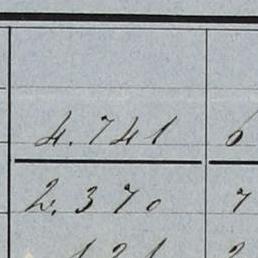 4.741 6
2.370 7